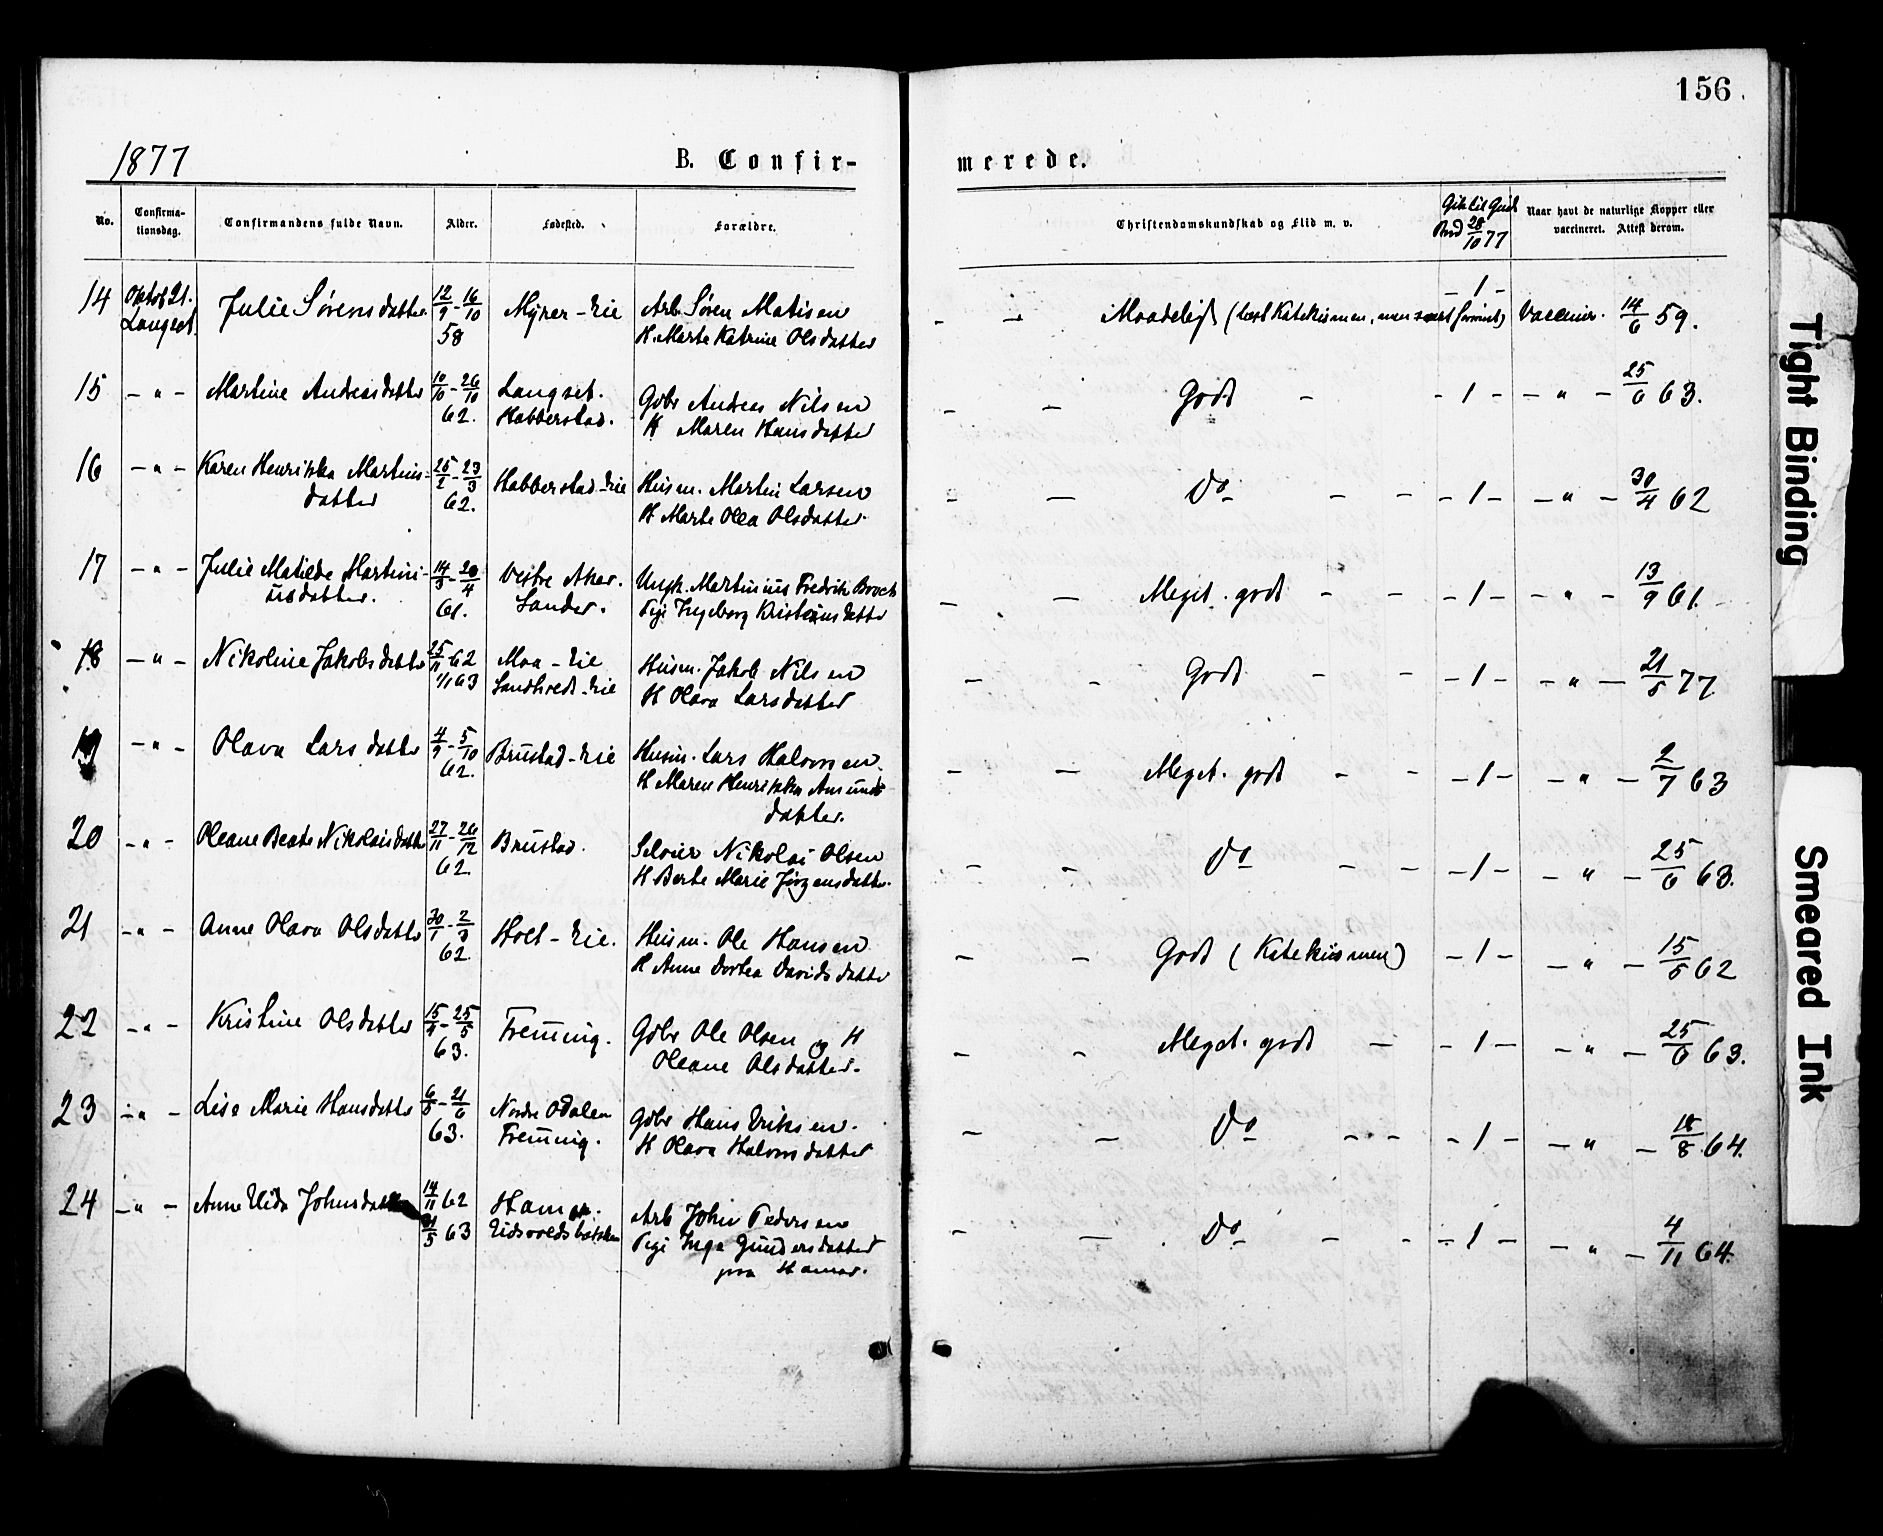 156
1877
B. Confir-
merede.
No.
Confirma-
tionsdag.
Confirmandens fulde Navn.
Alder.
Fødested.
Forældre.
Christendomskundskab og Flid m. v.
Gik til Guds
Bord 28/10 77
Naar havt de naturlige Kopper eller
vaccineret. Attest derom.
14 Oktob 21. Langset Julie Sørensdatter 12/9 - 16/10 58 Myrer-eie Arb. Søren Matisen
K. Marte Katrine Olsdatter
- - Maadeligt (læst Katekismen, men svært) - 1 - Vaccin. 14/6 59.
15 - " - Martine Andreasdatter 10/10 - 26/10 62. Langset. Habberstad. Gdbr Andreas Nilsen
K Maren Hansdatter
- - Godt - - 1 - - " - 25/6 63.
16 - " - Karen Henrikka Martins-
datter 25/2 - 23/3 62. Habberstad-eie Husm. Martin Larsen
K Marte Olea Olsdatter
- - Do - - - 1 - - " - 30/4 62
17 - " - Julie Matilde Martini-
usdatter. 14/3 - 20/4 61. Vestre Aker. Sander. Ungk. Martinius Fredrik Broch
Pige Ingeborg Kristiansdatter
- - Meget godt - - - 1 - - " - 13/9 61.
18 - " - Nikoline Jakobsdatter 25/11 62 1/1 63 Moa-eie Sandholt-eie Husm. Jakob Nilsen
K Olava Larsdatter
- - Godt - - - 1 - - " - 21/5 77
19 - " - Olava Larsdatter 4/9 - 5/10 62. Brustad-eie Husm. Lars Halvorsen.
K Maren Henrikka Amunds
datter.
- - Meget godt - - - 1 - - " - 2/7 63
20 - " - Oleane Beate Nikolaisdatter 27/11 - 26/12 62. Brustad. Seleier Nikolai Olsen
K Berte Marie Jörgensdatter.
- - Do - - - 1 - - " - 25/6 63.
21 - " - Anne Olava Olsdatter 30/1 - 2/3 62. Holt-eie. Husm. Ole Hansen
K Anne Dortea Davidsdatter
- - Godt (Katekismen) - 1 - - " - 15/5 62
22 - " - Kristine Olsdatter 15/4 - 25/5 63. Freming. Gdbr Ole Olsen og K
Oleane Olsdatter.
- - Meget godt - - 1 - - " - 25/6 63.
23 - " - Lise Marie Hansdatter 6/5 - 21/6 63. Nordre Odalen Freming. Gdbr Hans Eriksen.
K Olava Halvorsdatter
- - Do - - - 1 - - " - 18/8 64.
24 - " - Anne Elida Johnsdatter 14/11 62 21/5 63 Hamar. Eidsvoldsbakken Arb John Pedersen
Pige Inga Gundersdatter
paa Hamar.
- - Do - - - 1 - - " - 4/11 64.
Tight Binding
Smeared Ink